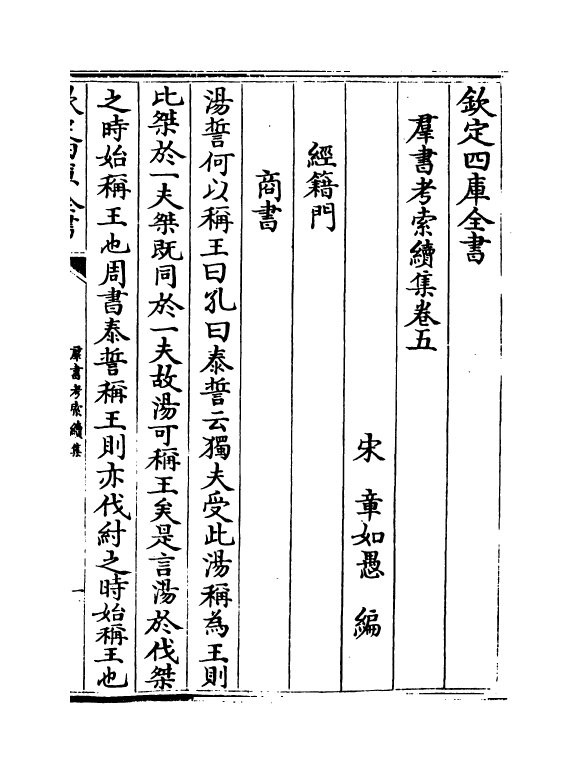 欽定四庫全書
羣書考索續集卷五
宋 章如愚 編
經籍門
商書
湯誓何以稱王曰孔曰泰誓云獨夫受此湯稱為王則
比桀於一夫桀既同於一夫故湯可稱王矣是言湯於伐桀
之時始稱王也周書泰誓稱王則亦伐紂之時始稱王也
欽定四庫全書
羣書考索續集
一